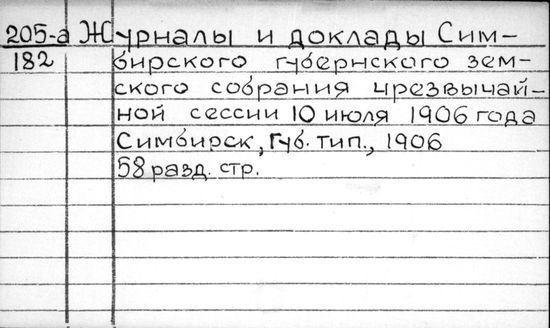 205-а Журналы и доклады Сим-
182 бирского губернского зем-
ского собрания чрезвычай-
ной сессии 10 июля 1906 года
Симбирск, Губ. тип., 1906
58 разд. стр.